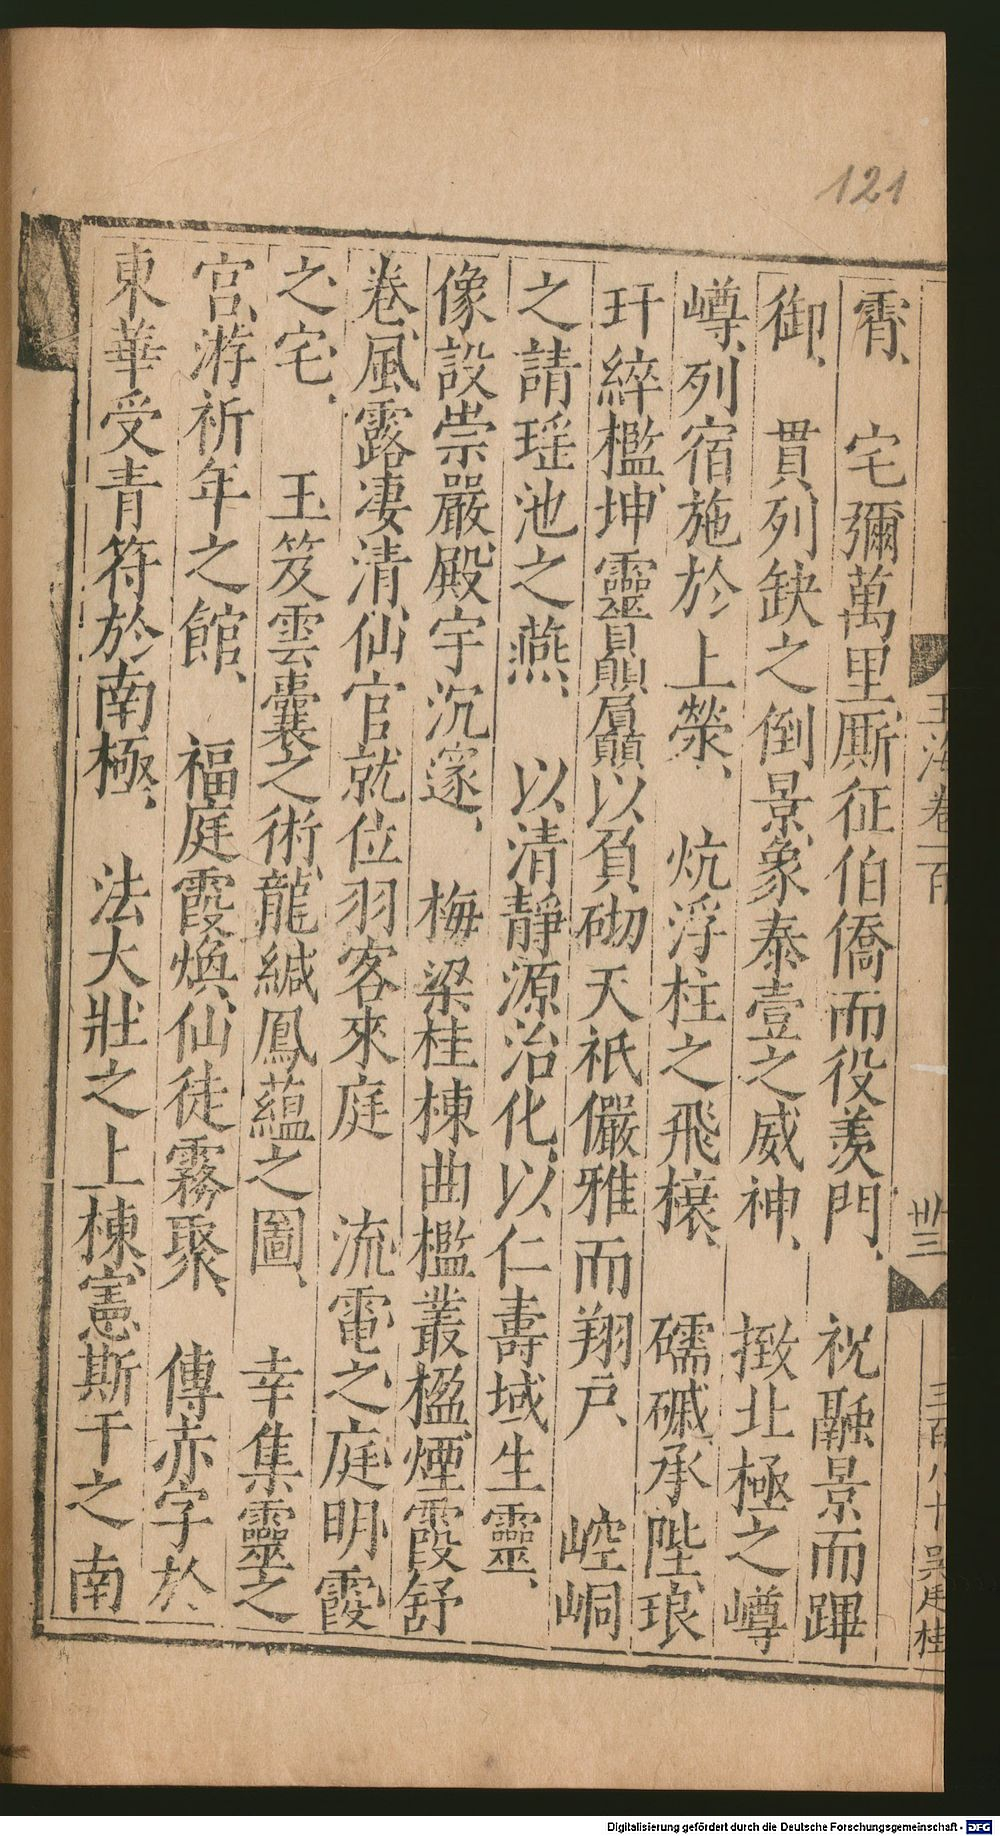 121
玉海卷一百
卅三
三百八十 吳用桂
霄、 宅彌萬里、厮征伯僑而役羨門、 祝融景而蹕
御、 貫列缺之倒景、象泰壹之威神、 撴北極之嶟
嶟、列宿施於上榮、 炕浮柱之飛榱、 礝磩承陛、琅
玕綷檻、坤靈贔屭以負砌、天祇儼雅而翔戶、 崆峒
之請瑶池之燕、 以清靜源治化、以仁壽域生靈、
像設崇嚴、殿宇沉邃、 梅梁桂棟、曲檻叢楹、煙霞舒
卷、風露凄清、仙官就位、羽客來庭 流電之庭、明霞
之宅、 玉笈雲囊之術、龍緘鳳蘊之圖、 幸集靈之
宫、游祈年之館、 福庭霞煥、仙徒霧聚、 傳赤字於
東華、受青符於南極、 法大壯之上棟、憲斯干之南
Digitalisierung gefördert durch die Deutsche Forschungsgemeinschaft - DFG